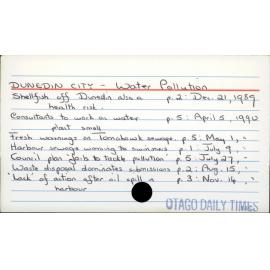 DUNEDIN CITY - Water Pollution
Shellfish off Dunedin also a p. 2: Dec. 21, 1989
health risk.
Consultants to work on water p. 5: April 5, 1990
plant smell
Fresh warnings on Tomahawk sewage. p. 5: May 1, "
Harbour sewage warning to swimmers p. 1: July 9, "
Council plan fails to tackle pollution p. 5: July 27, "
Waste disposal dominates submissions p. 2: Aug. 15, "
Lack of action after oil spill in p. 3: Nov. 14, "
harbour
OTAGO DAILY TIMES